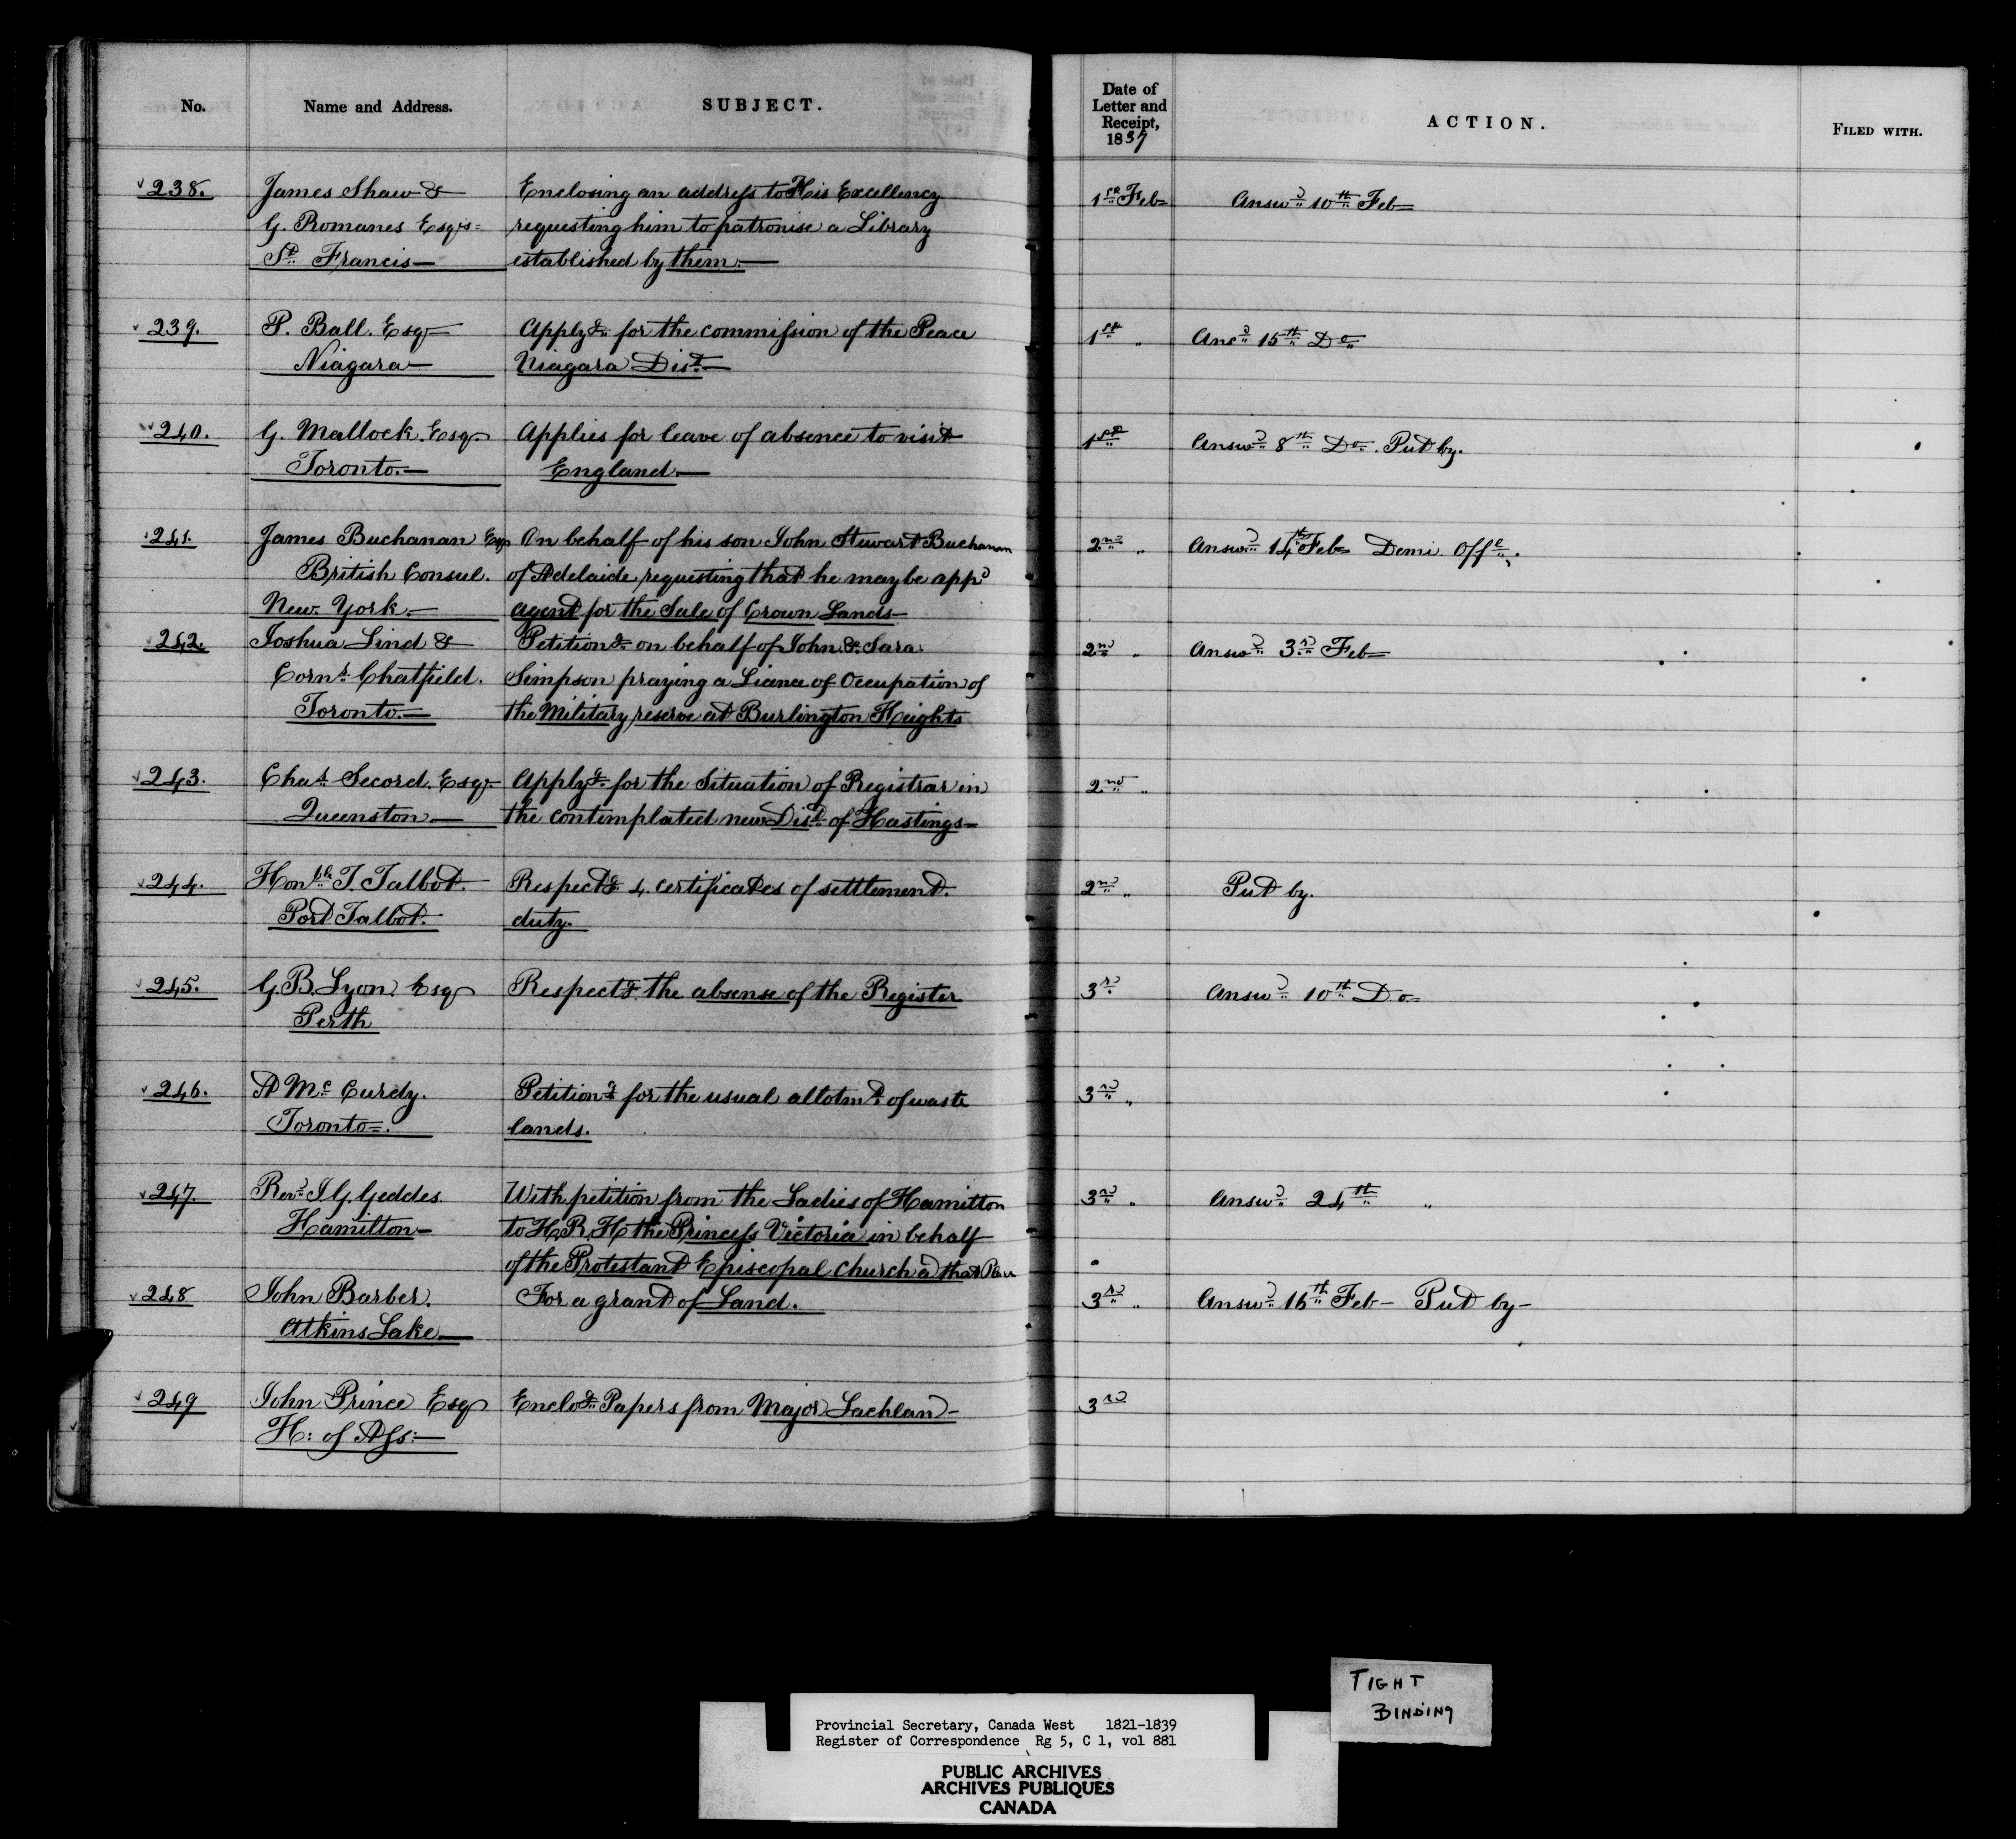 No. Name and Address. SUBJECT. Date of Letter and Receipt, 1837 ACTION. FILED WITH.
238. James Shaw & Enclosing an address to His Excellency 1st Feb Answd 10th Feb
G. Romanes Esqrs requesting him to patronise a Library
St Francis established by them.
239. P. Ball. Esqr Applyg for the commission of the Peace 1st " Ansd 15th Do
Niagara Niagara Dist.
240. G. Mallock. Esqr Applies for leave of absence to visit 1st Answd 8th Do. Put by.
Toronto. England.
241. James Buchanan Esqr On behalf of his son John Stewart Buchanan 2nd " Answd 14th Feb Demi Offl.
British Consul. of Adelaide requesting that he may be appd
New York. agent for the Sale of Crown Lands
242. Joshua Lind & Petitiong on behalf of John & Sara 2nd " Answd 3rd Feb
Corns Chatfield. Simpson praying a Licence of Occupation of
Toronto. the Military reserve at Burlington Heights
243. Chas Secord. Esqr Applyg for the Situation of Registrar in 2nd "
Queenston the contemplated new Dist of Hastings
244. Honble T. Talbot. Respectg 4. certificates of settlement. 2nd " Put by.
Port Talbot. duty.
245. G. B. Lyon Esqr Respectg the absense of the Register 3rd Answd 10th Do
Perth
246. A McCurdy. Petitiong for the usual allotmt of waste 3rd "
Toronto. lands.
247. Revd J. G. Geddes With petition from the Ladies of Hamilton 3rd " Answd 24th "
Hamilton to H. R. H the Princess Victoria in behalf
of the Protestant Episcopal Church a that
248 John Barber. For a grant of Land. 3rd " Answd 16th Feb Put by
Atkins Lake
249 John Prince Esqr Enclog Papers from Major Lachlan 3rd
H: of Ass:
TIGHT
BINDING
Provincial Secretary, Canada West 1821-1839
Register of Correspondence Rg 5, C 1, vol 881
PUBLIC ARCHIVES
ARCHIVES PUBLIQUES
CANADA